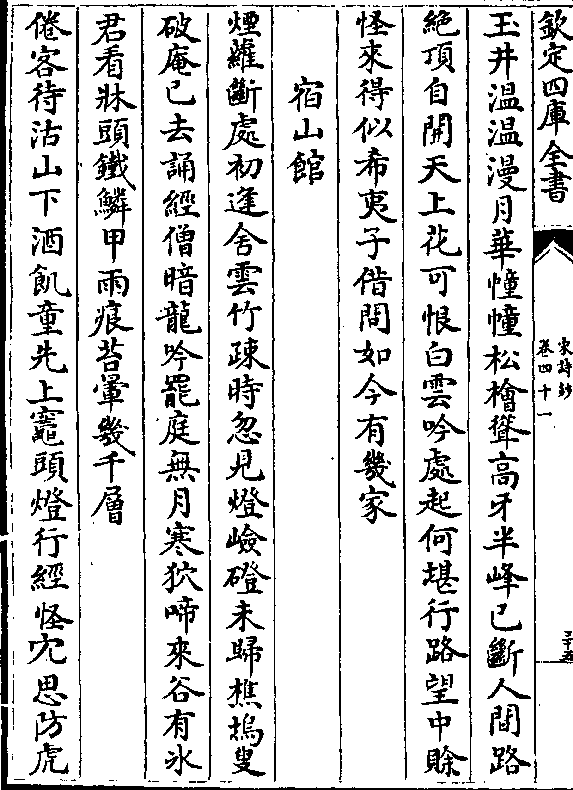 欽定四庫全書
宋詩鈔
卷四十一
三十五
玉井溫溫漫月華幢幢松檜聳高牙半峰已斷人間路
絶頂自開天上花可恨白雲吟處起何堪行路望中賖
怪來得似希夷子借問如今有幾家
宿山館
煙蘿斷處初逢舍雲竹疎時忽見燈嶮磴未歸樵塢叟
破庵已去誦經僧暗龍吟罷庭無月寒狖啼來谷有氷
君看牀頭鐵鱗甲雨痕苔暈幾千層
倦客待沽山下酒飢童先上竈頭燈行經怪穴思防虎